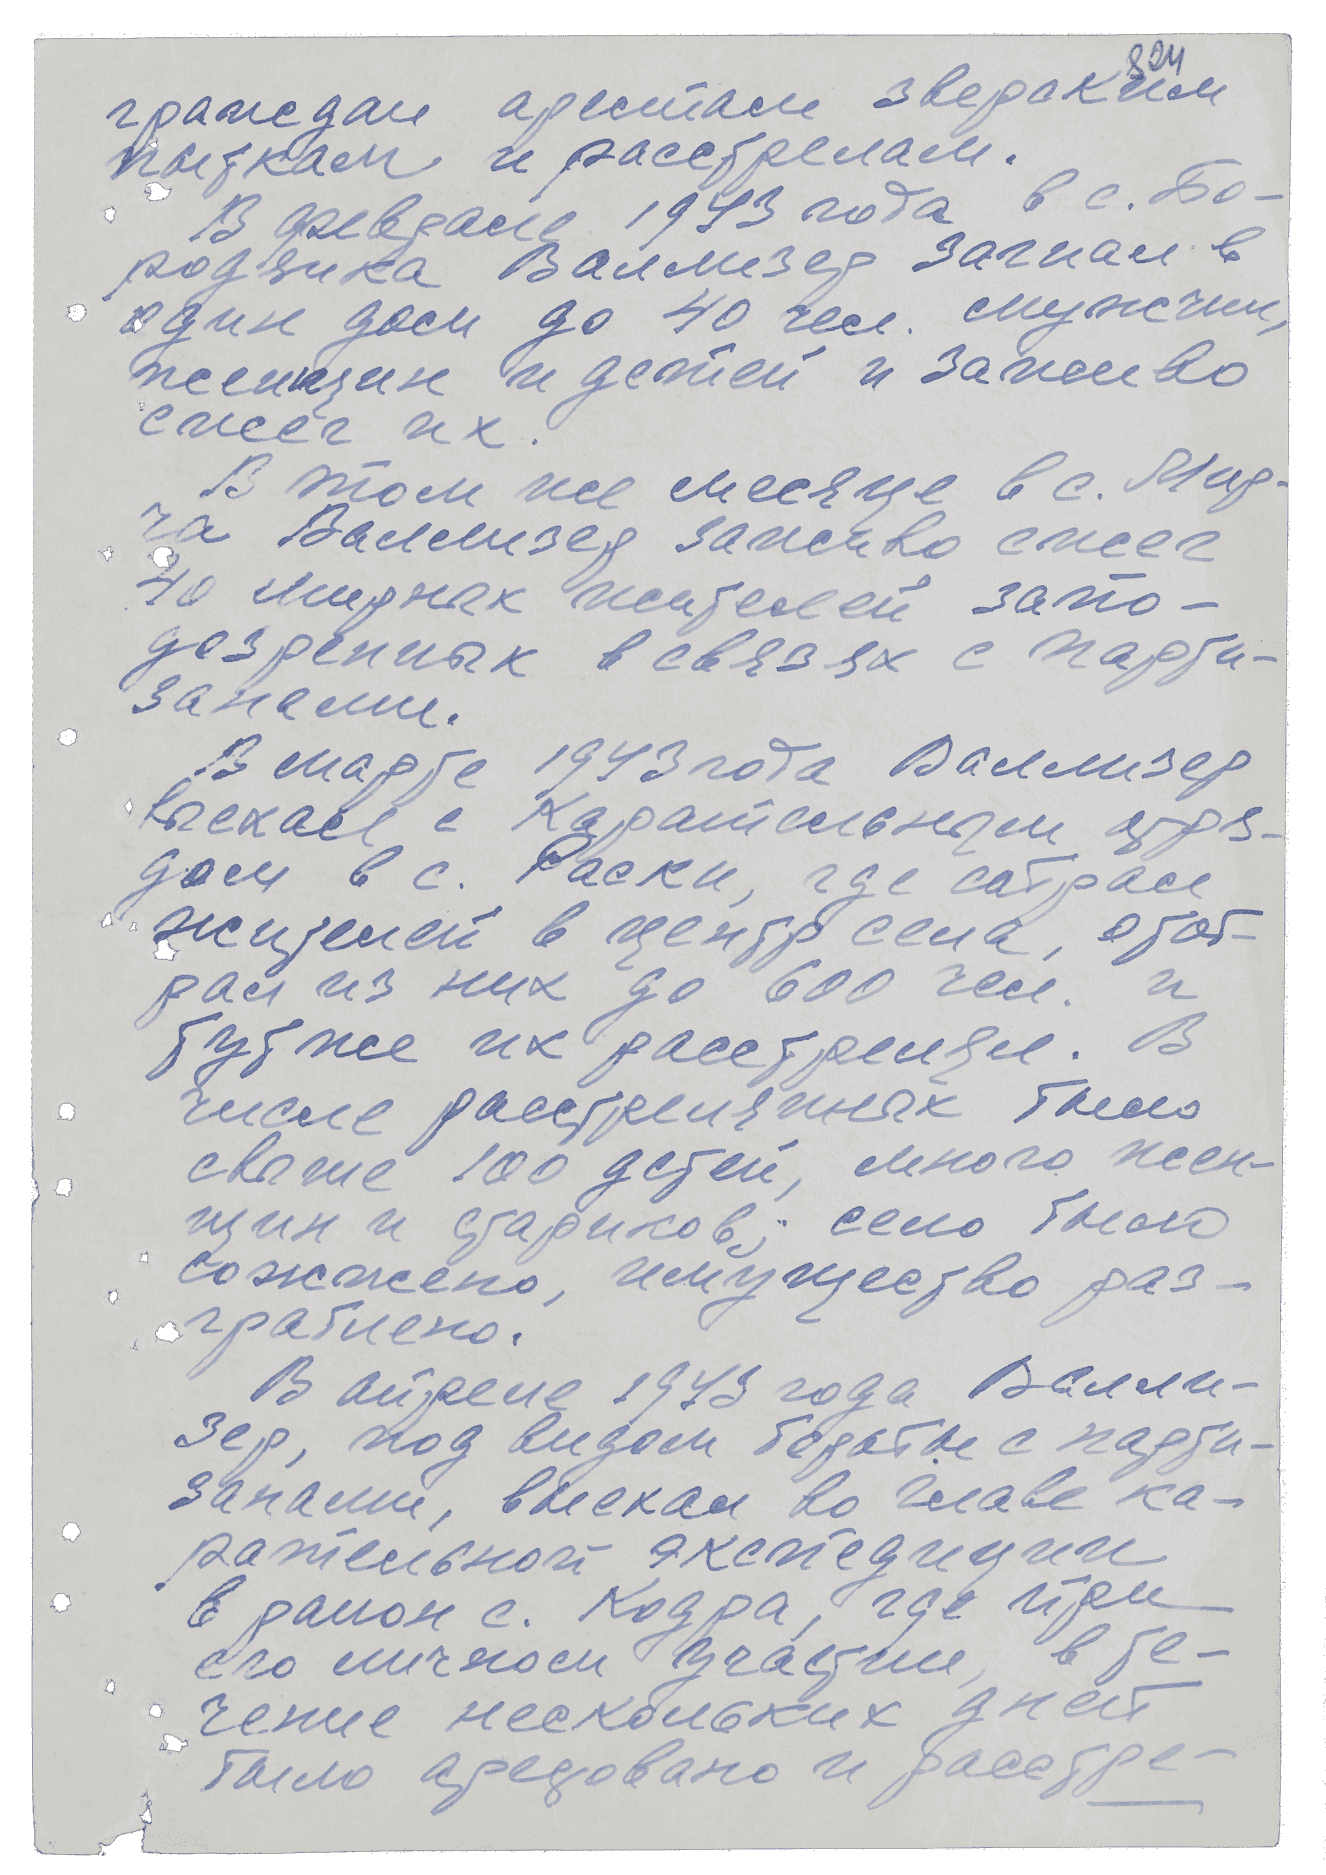 824
граждан арестам зверским
пыткам и расстрелам.
В феврале 1943 года в с. Бо-
родянка Валлизер загнал в
один дом до 40 чел. мужчин,
женщин и детей и заживо
сжег их.
В том же месяце в с. Мир-
ча Валлизер заживо сжег
40 мирных жителей запо-
дозренных в связях с парти-
занами.
В марте 1943 года Валлизер
выехал с карательным отря-
дом в с. Раски, где собрал
жителей в центр села, отоб-
рал из них до 600 чел. и
тут же их расстрелял. В
числе расстрелянных было
свыше 100 детей, много жен-
щин и стариков; село было
сожжено, имущество раз-
граблено.
В апреле 1943 года Валли-
зер, под видом борьбы с парти-
занами, выехал во главе ка-
рательной экспедиции
в район с. Кодра, где при
его личном участии, в те-
чение нескольких дней
было арестовано и расстре-